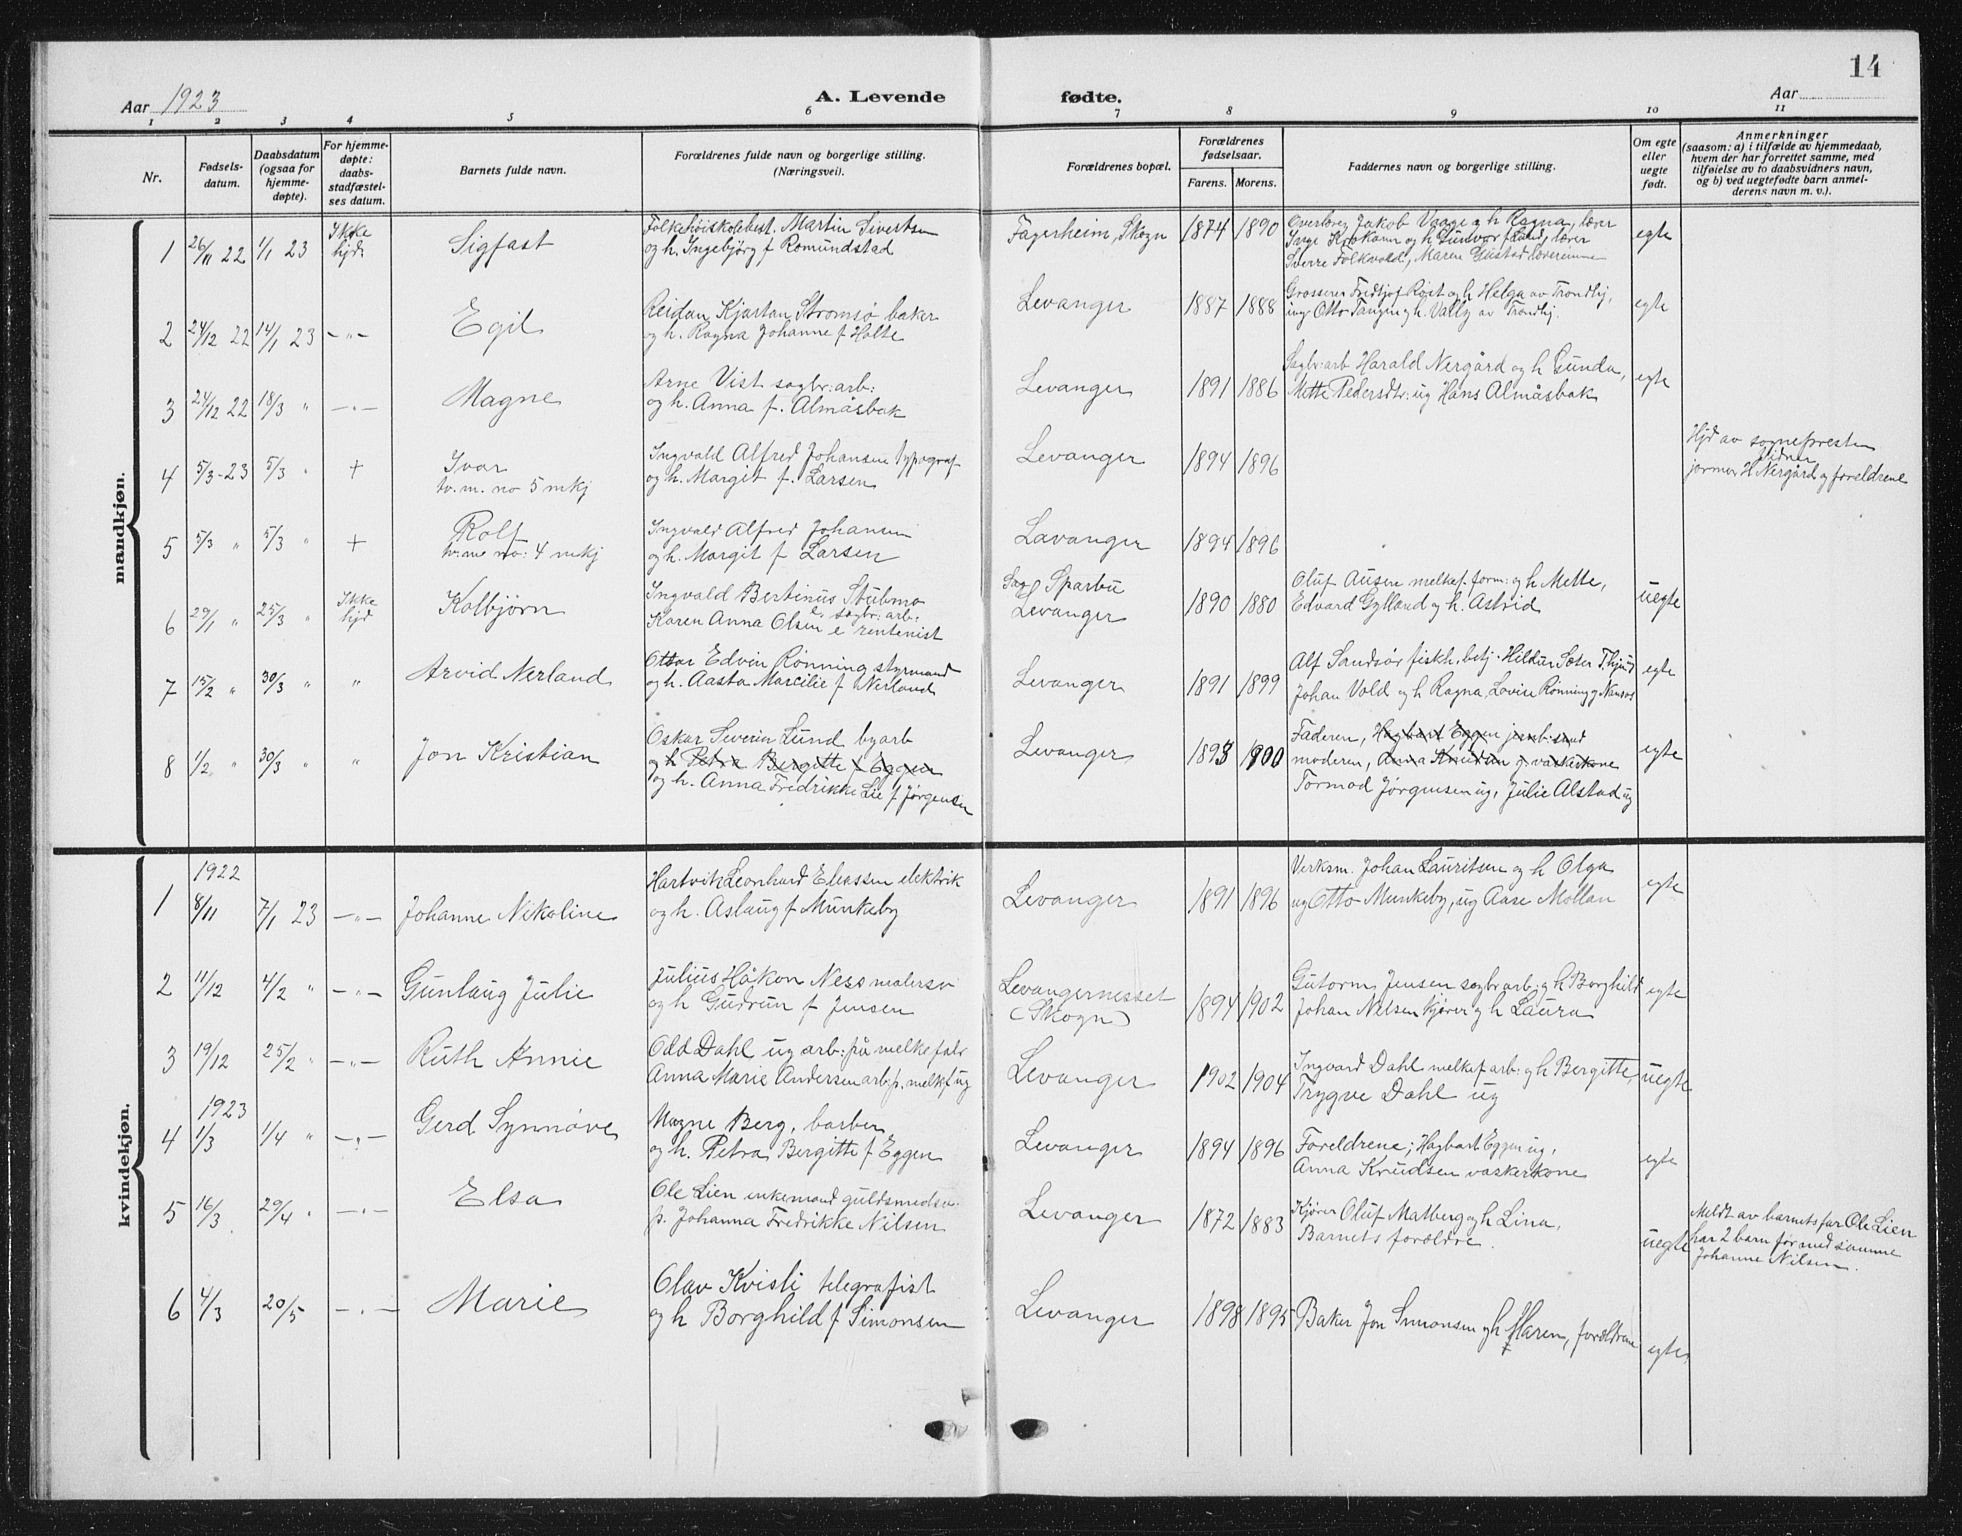 14
Aar 1923 A. Levende fødte. Aar
1 2 3 4 5 6 7 8 9 10 11
Nr.
Fødsels-
datum.
Daabsdatum
(ogsaa for
hjemme-
døpte).
For hjemme-
døpte:
daabs-
stadfæstel-
ses datum.
Barnets fulde navn.
Forældrenes fulde navn og borgerlige stilling.
(Næringsvei).
Forældrenes bopæl.
Forældrenes
fødselsaar.
Farens. Morens.
Faddernes navn og borgerlige stilling.
Om egte
eller
uegte
født.
Anmerkninger
(saasom: a) i tilfælde av hjemmedaab,
hvem der har forrettet samme, med
tilføielse av to daabsvidners navn,
og b) ved uegtefødte barn anmel-
derens navn m. v.).
mandkjøn.
1 26/11 22 1/1 23 Ikke hjd: Sigfast
Folkehøiskolebest. Martin Sivertsen
og h. Ingebjørg f Romundstad
Fagerheim, Skogn 1874 1890
Jakob Vaage og h Ragna, lærer
Inge Krokann og h Gunvor lærer
Sverre Folkvold, Maren Gustad lærerinne
egte
2 24/12 22 14/1 23 -"- Egil
Reidar Kjartan Strømsø baker
og h. Ragna Johanne f Holte
Levanger 1887 1888
Grosserer Fridtjof Røst og h Helga av Trondhj,
ing Otto Tangen og h. Vally av Trondhj.
egte
3 24/12 22 18/3 " -"- Magne
Arne Vist sagbr: arb:
og h. Anna f. Almåsbak
Levanger 1891 1886
Sagbr: arb Harald Nergård og h Gunda,
Mette Pedersdtr: ug Hans Almåsbak
egte
4 5/3-23 5/3 " + Ivar
tv. m. no 5 mkj
Ingvald Alfred Johansen typograf
og h. Margit f. Larsen
Levanger 1894 1896
Hjd av sognepresten
Vidner
jormor H Nergård og foreldrene
5 5/3 " 5/3 " + Rolf
tv: me no: 4 mkj
Ingvald Alfred Johansen
og h. Margit f Larsen
Lavanger 1894 1896
6 29/1 " 25/3 " Ikke hjd Kolbjørn
Ingvald Bertinus Stubmo
e, sagbr: arb:
Karen Anna Olsen e rentenist
Sparbu
Levanger 1890 1880
Oluf Ausen melkef. form: og h Mette,
Edvard Gylland og h. Astrid
uegte
7 15/2 " 30/3 " " Arvid Nerland
Ottar Edvin Rønning styrmand
og h. Aasta Marcilie f Nerland
Levanger 1891 1899
Alf Sandsør fiskh. betj. Hildur Sæter
Johan Vold og h Ragna, Lovise Rønning
egte
8 1/2 " 30/3 " " Jon Kristian
Oskar Severin Lund byarb
og h Petra Bergitte f Eggen
og h. Anna Fredrikke Lie f Jørgensen
Levanger 1893 1900
Faderen, Hagbart Eggen
moderen, Anna Knudsen vaskerkone
Tormod Jørgensen ug, Julie Alstad ug
egte
kvindekjøn.
1922
1 8/11 7/1 23 -"- Johanne Nikoline
Hartvik Leonhard Eliassen elektrik
og h. Aslaug f Munkeby
Levanger 1891 1896
Verksm. Johan Lauritsen og h Olga
ug Otto Munkeby, ug Aase Mollan
egte
2 11/12 4/2 " -"- Gunlaug Julie
Julius Håkon Ness malersv
og h Gudrun f Jensen
Levangernesset
(Skogn) 1894 1902
Gutorm Jensen sagbr arb: og h Borghild
Johan Nilsen kjører og h Laura
egte
3 19/12 25/2 " -"- Ruth Annie
Odd Dahl ug arb: på melkefabr
Anna Marie Andersen arb: p. melkf ug
Levanger 1902 1904
Ingvard Dahl melkef arb: og h Bergitte,
Trygve Dahl ug
uegte
1923
4 1/3 1/4 " -"- Gerd Synnøve
Magne Berg, barber
og h. Petra Bergitte f Eggen
Levanger 1894 1896
Foreldrene; Hagbart Eggen ug,
Anna Knudsen vaskerkone
egte
5 16/3 29/4 " -"- Elsa
Ole Lien enkemand guldsmedsv.
p. Johanna Fredrikke Nilsen
Levanger 1872 1883
Kjører Oluf Matberg og h Lina,
Barnets forældre.
uegte
Meldt av barnets far Ole Lien
har 2 barn før med samme
Johanne Nilsen.
6 4/3 20/5 -"- Marie
Olav Kvisli telegrafist
og h Borghild f Simonsen
Levanger 1898 1895
Baker Jon Simonsen og h Maren, forældrene
egte